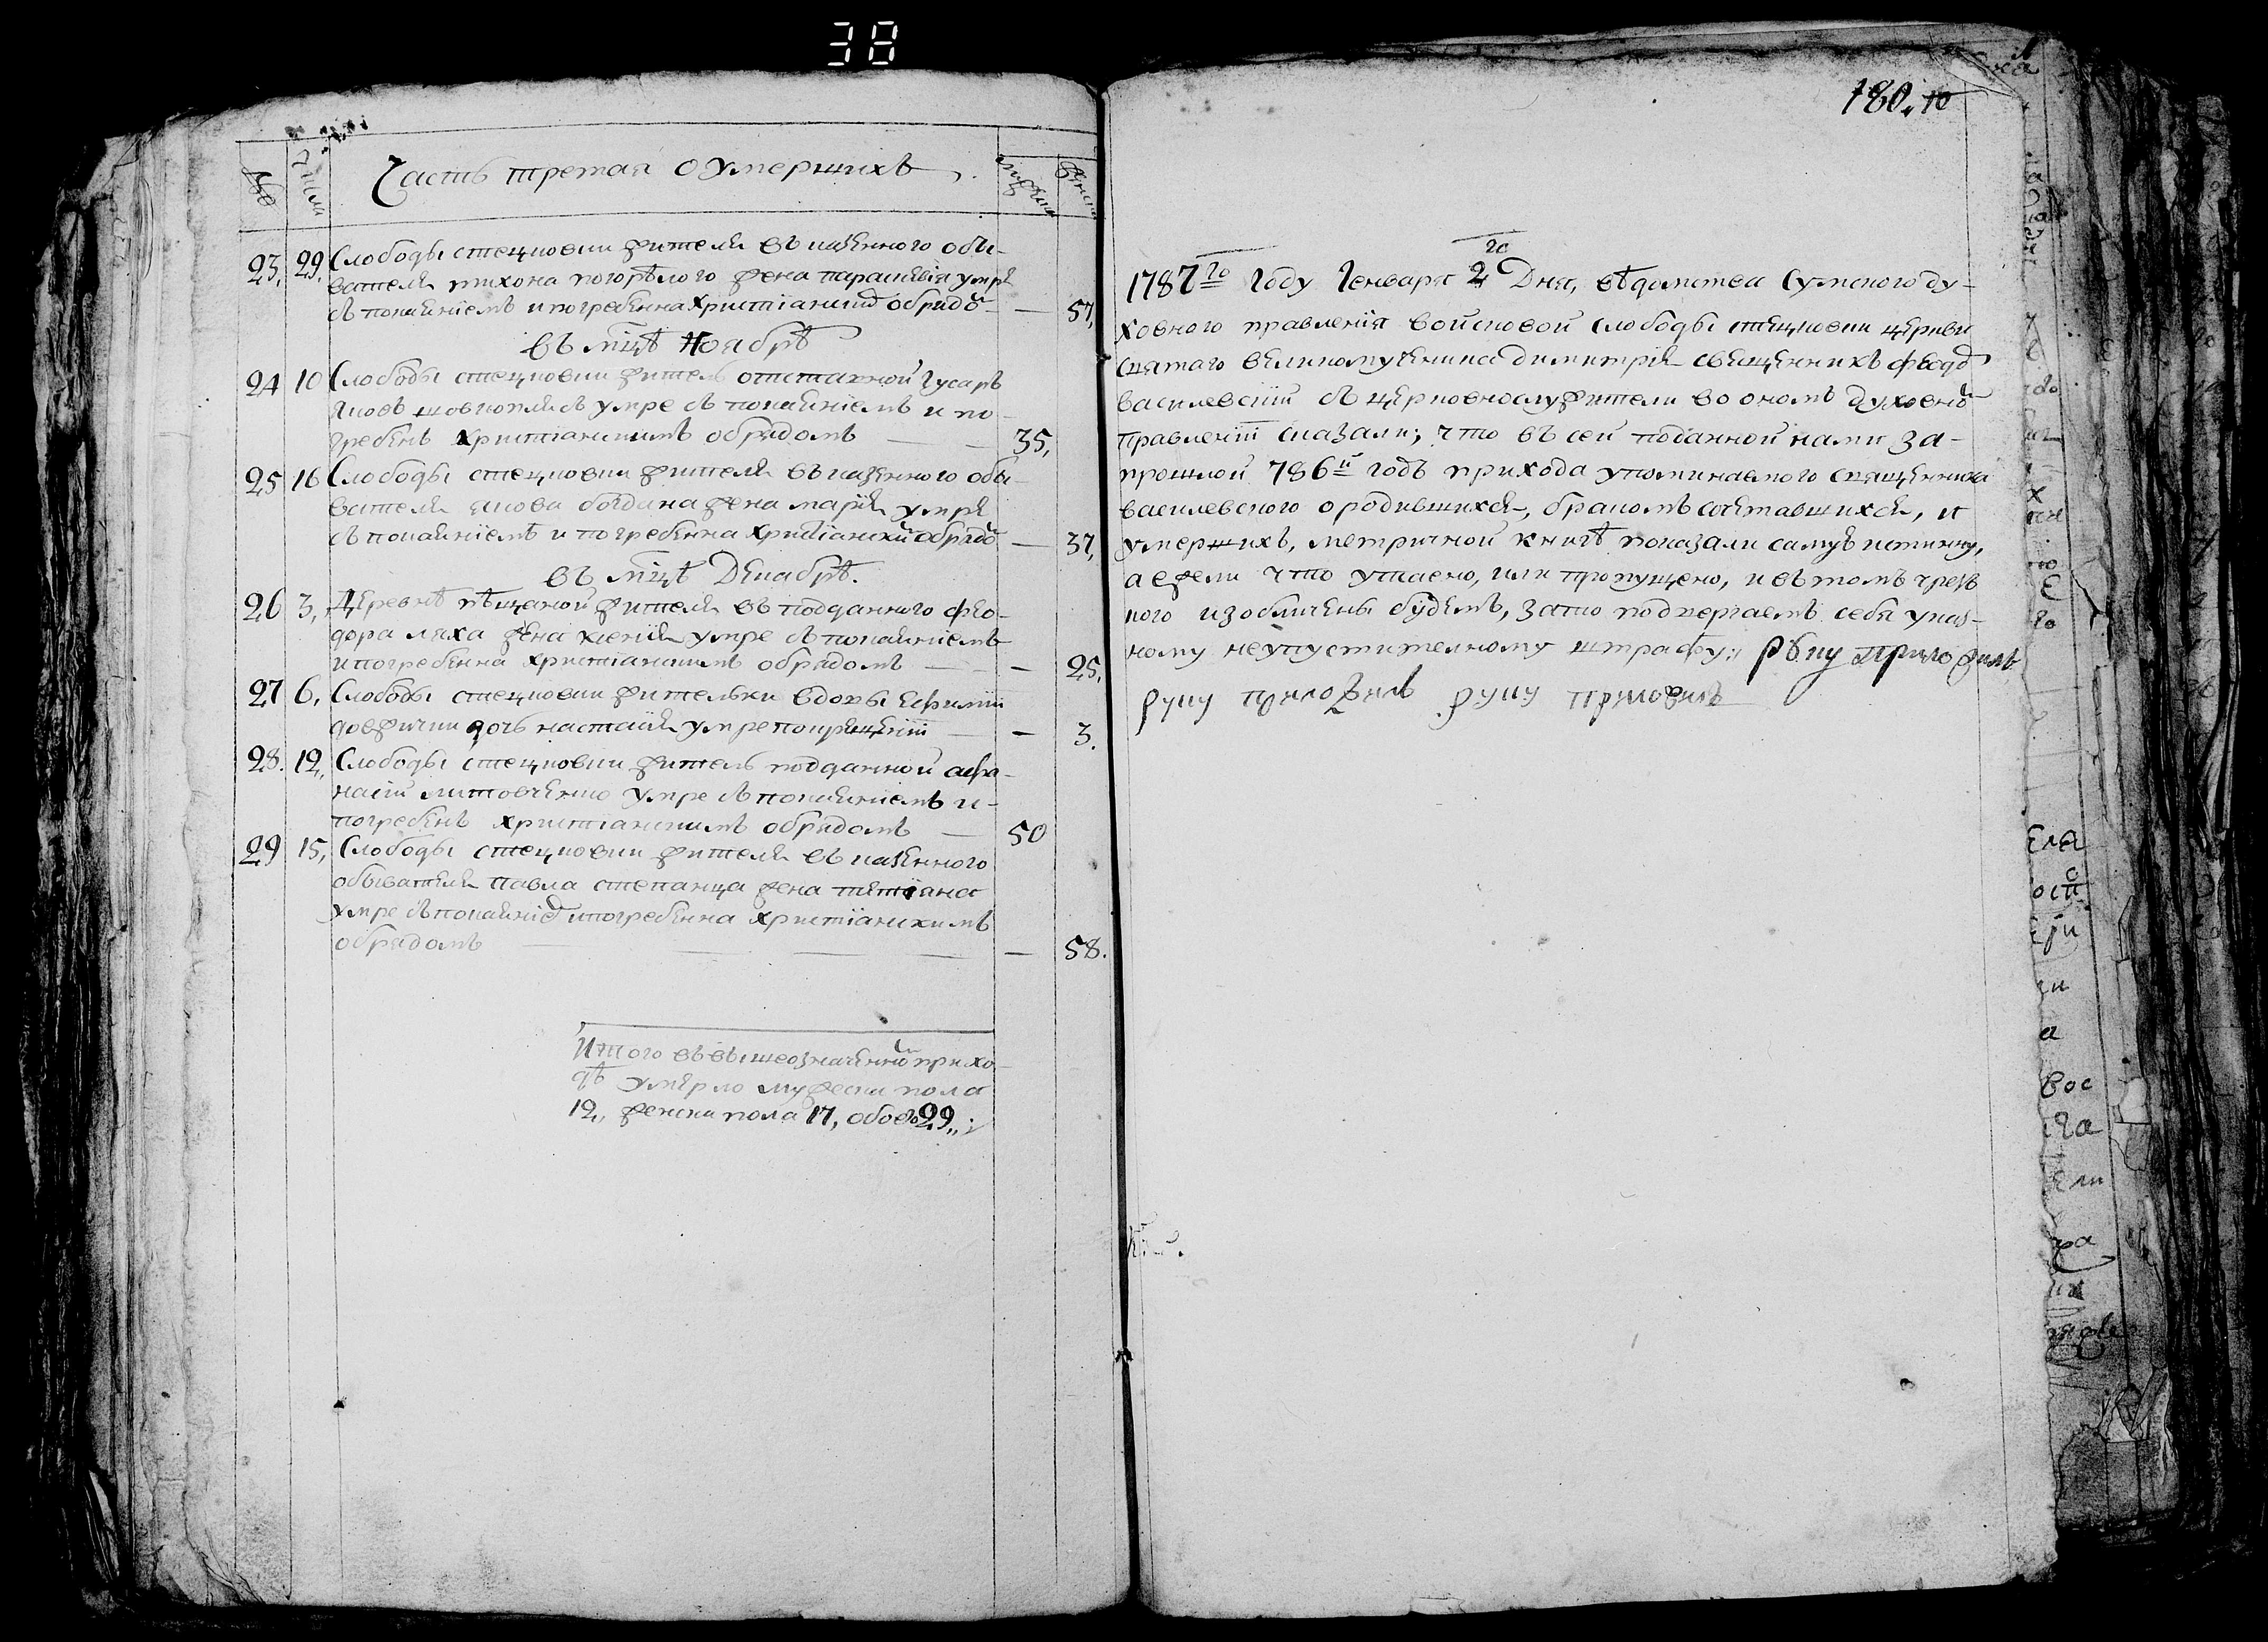 38
180. 10
№ Числа Часть третая о умершихъ мужеска женска
23, 29, Слободы стецковки жителя въ казенного обы-
вателя тихона погорѣлого жена параскѣвiя умре
съ покаянiемъ и погребенна христiанскимъ обрядо — 57,
въ мцѣ Ноябрѣ
24 10 Слободы стецковки житель отставной гусаръ
яковъ умре съ покаянiемъ и по-
гребенъ христiанскимъ обрядомъ — — 35,
25 16 Слободы стецковки жителя въ казенного обы-
вателя якова богдина жена марiя умре
съ покаянiемъ и погребенна христiанский обрядо — 37,
въ мцѣ Декабрѣ.
26 3, Деревнѣ пѣщаной жителя въ подданного фео-
дора ляха жена ксенiя умре съ покаянiемъ
и погребенна христiанскимъ обрядомъ — — 25,
27 6, Слободы стецковки жительки вдовы Ефимiи
довжички дочь настасiя умре по крещенiи — — 3.
28. 12, Слободы стецковки житель подданной афа-
насiй литовченко умре съ покаянiемъ и-
погребенъ христiанскимъ обрядомъ — 50
29 15, Слободы стецковки жителя въ казенного
обывателя павла степанца жена татiана
умре съ покаянiе и погребенна христiанскимъ
обрядомъ — — — — — 58.
Итого въ вышеозначенной прихо-
дѣ умерло мужеска пола
12, женска пола 17, обоего 29,,;
1787го Году Генваря 2го Дня, вѣдомства Сумского ду-
ховного правленiя войсковой слободы стецковки церкви
святаго великомученика димитрiя священникъ феод
василевскiй съ церковнослужители во ономъ духовно
правленiи сказали; что въ сей поданной нами за-
прошлой 786й годъ прихода упоминаемого священника
василевского о родившихся, бракомъ сочетавшихся, и
умершихъ, метричной книгѣ показали самую истинну,
а ежели что утаено, или пропущено, и въ томъ чрезъ
кого изобличены будемъ, за то подвергаемъ себя указ-
ному неупустителному штрафу;, руку приложилъ
руку приложилъ руку приложилъ